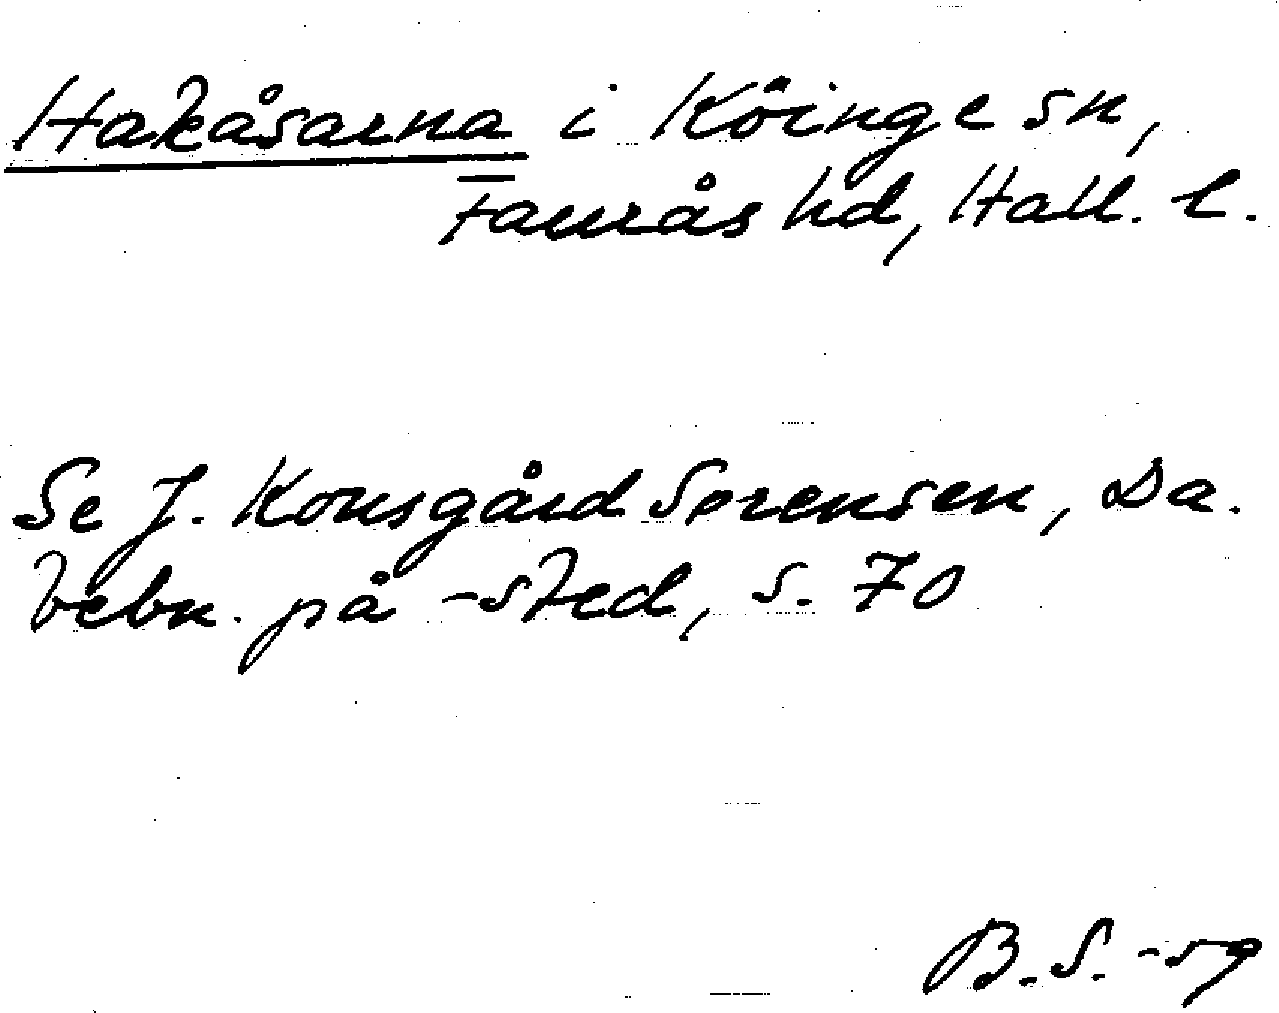 Hakåsarna i Köinge sn,
Faurås hd, Hall. l.
Se J. Kousgård Sørensen, Da.
bebn. på -sted, s. 70
B.S. -59